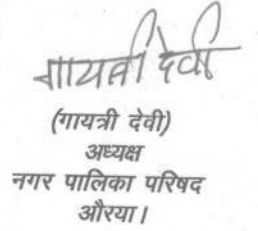 गायत्री देवी
(गायत्री देवी)
अध्यक्ष
नगर पालिका परिषद
औरया।